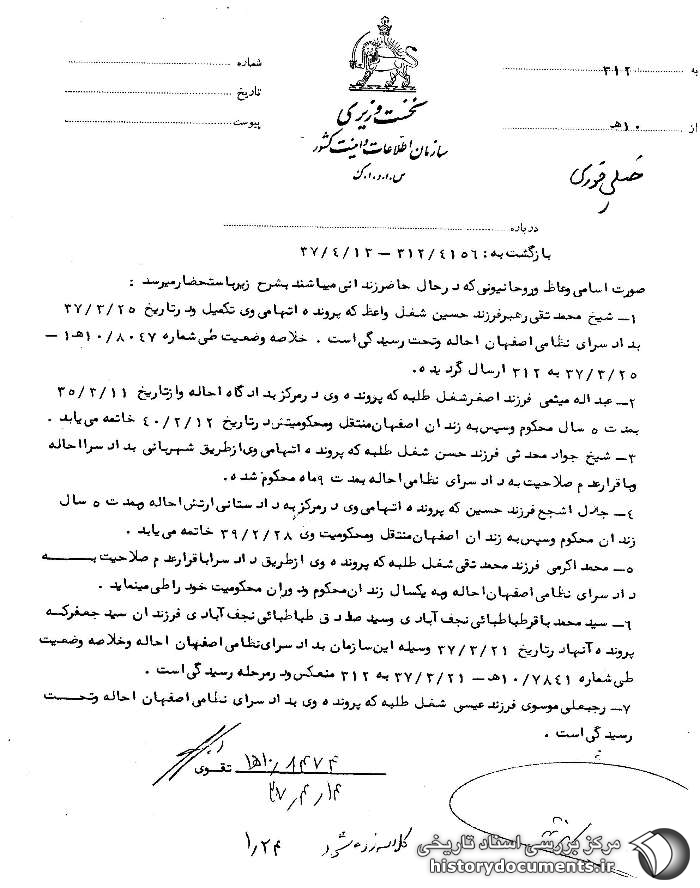 به ۳۱۲
از ۱۰هـ
شماره
تاریخ
پیوست
نخست وزیری
سازمان اطلاعات و امنیت کشور
س.ا.و.ا.ک
خیلی فوری
درباره
بازگشت به: ۳۱۲/۴۱۵۶ – ۳۷/۴/۱۳
صورت اسامی وعاظ وروحانیونی که درحال حاضرزندانی میباشند بشرح زیرباستحضارمیرسد :
۱– شیخ محمد تقی رهبرفرزند حسین شغل واعظ که پرونده اتهامی وی تکمیل ودرتاریخ ۳۷/۳/۲۵
بدادسرای نظامی اصفهان احاله وتحت رسیدگی است . خلاصه وضعیت طی شماره ۱۰/۸۰۴۷هـ۱–
۳۷/۳/۲۵ به ۳۱۲ ارسال گردیده.
۲– عبداله میثمی فرزند اصغرشغل طلبه که پرونده وی درمرکز بدادگاه احاله وازتاریخ ۳۵/۲/۱۱
بمدت ۵ سال محکوم وسپس به زندان اصفهان منتقل ومحکومیتش درتاریخ ۴۰/۲/۱۲ خاتمه می یابد .
۳– شیخ جواد محدثی فرزند حسن شغل طلبه که پرونده اتهامی وی ازطریق شهربانی بدادسرااحاله
وباقرارعدم صلاحیت به دادسرای نظامی احاله بمدت ۹ماه محکوم شده.
۴– جلال اشجع فرزند حسین که پرونده اتهامی وی درمرکز به دادستانی ارتش احاله وبمدت ۵ سال
زندان محکوم وسپس به زندان اصفهان منتقل ومحکومیت وی ۳۹/۲/۲۸ خاتمه می یابد .
۵– محمد اکرمی فرزند محمد تقی شغل طلبه که پرونده وی ازطریق دادسراباقرارعدم صلاحیت به
دادسرای نظامی اصفهان احاله وبه یکسال زندان محکوم ودوران محکومیت خود راطی مینماید .
۶– سید محمد باقرطباطبائی نجف آبادی وسید صادق طباطبائی نجف آبادی فرزندان سید جعفرکه
پرونده آنهادرتاریخ ۳۷/۳/۲۱ وسیله این سازمان بدادسرای نظامی اصفهان احاله وخلاصه وضعیت
طی شماره ۱۰/۷۸۴۱هـ– ۳۷/۳/۲۱ به ۳۱۲ منعکس ودرمرحله رسیدگی است .
۷– رجبعلی موسوی فرزند عیسی شغل طلبه که پرونده وی بدادسرای نظامی اصفهان احاله وتحت
رسیدگی است .
تقوی ۸۴۷۴/۱۰هـ۱
۳۷/۴/۱۴
۱/۲۴
مرکز بررسی اسناد تاریخی
historydocuments.ir